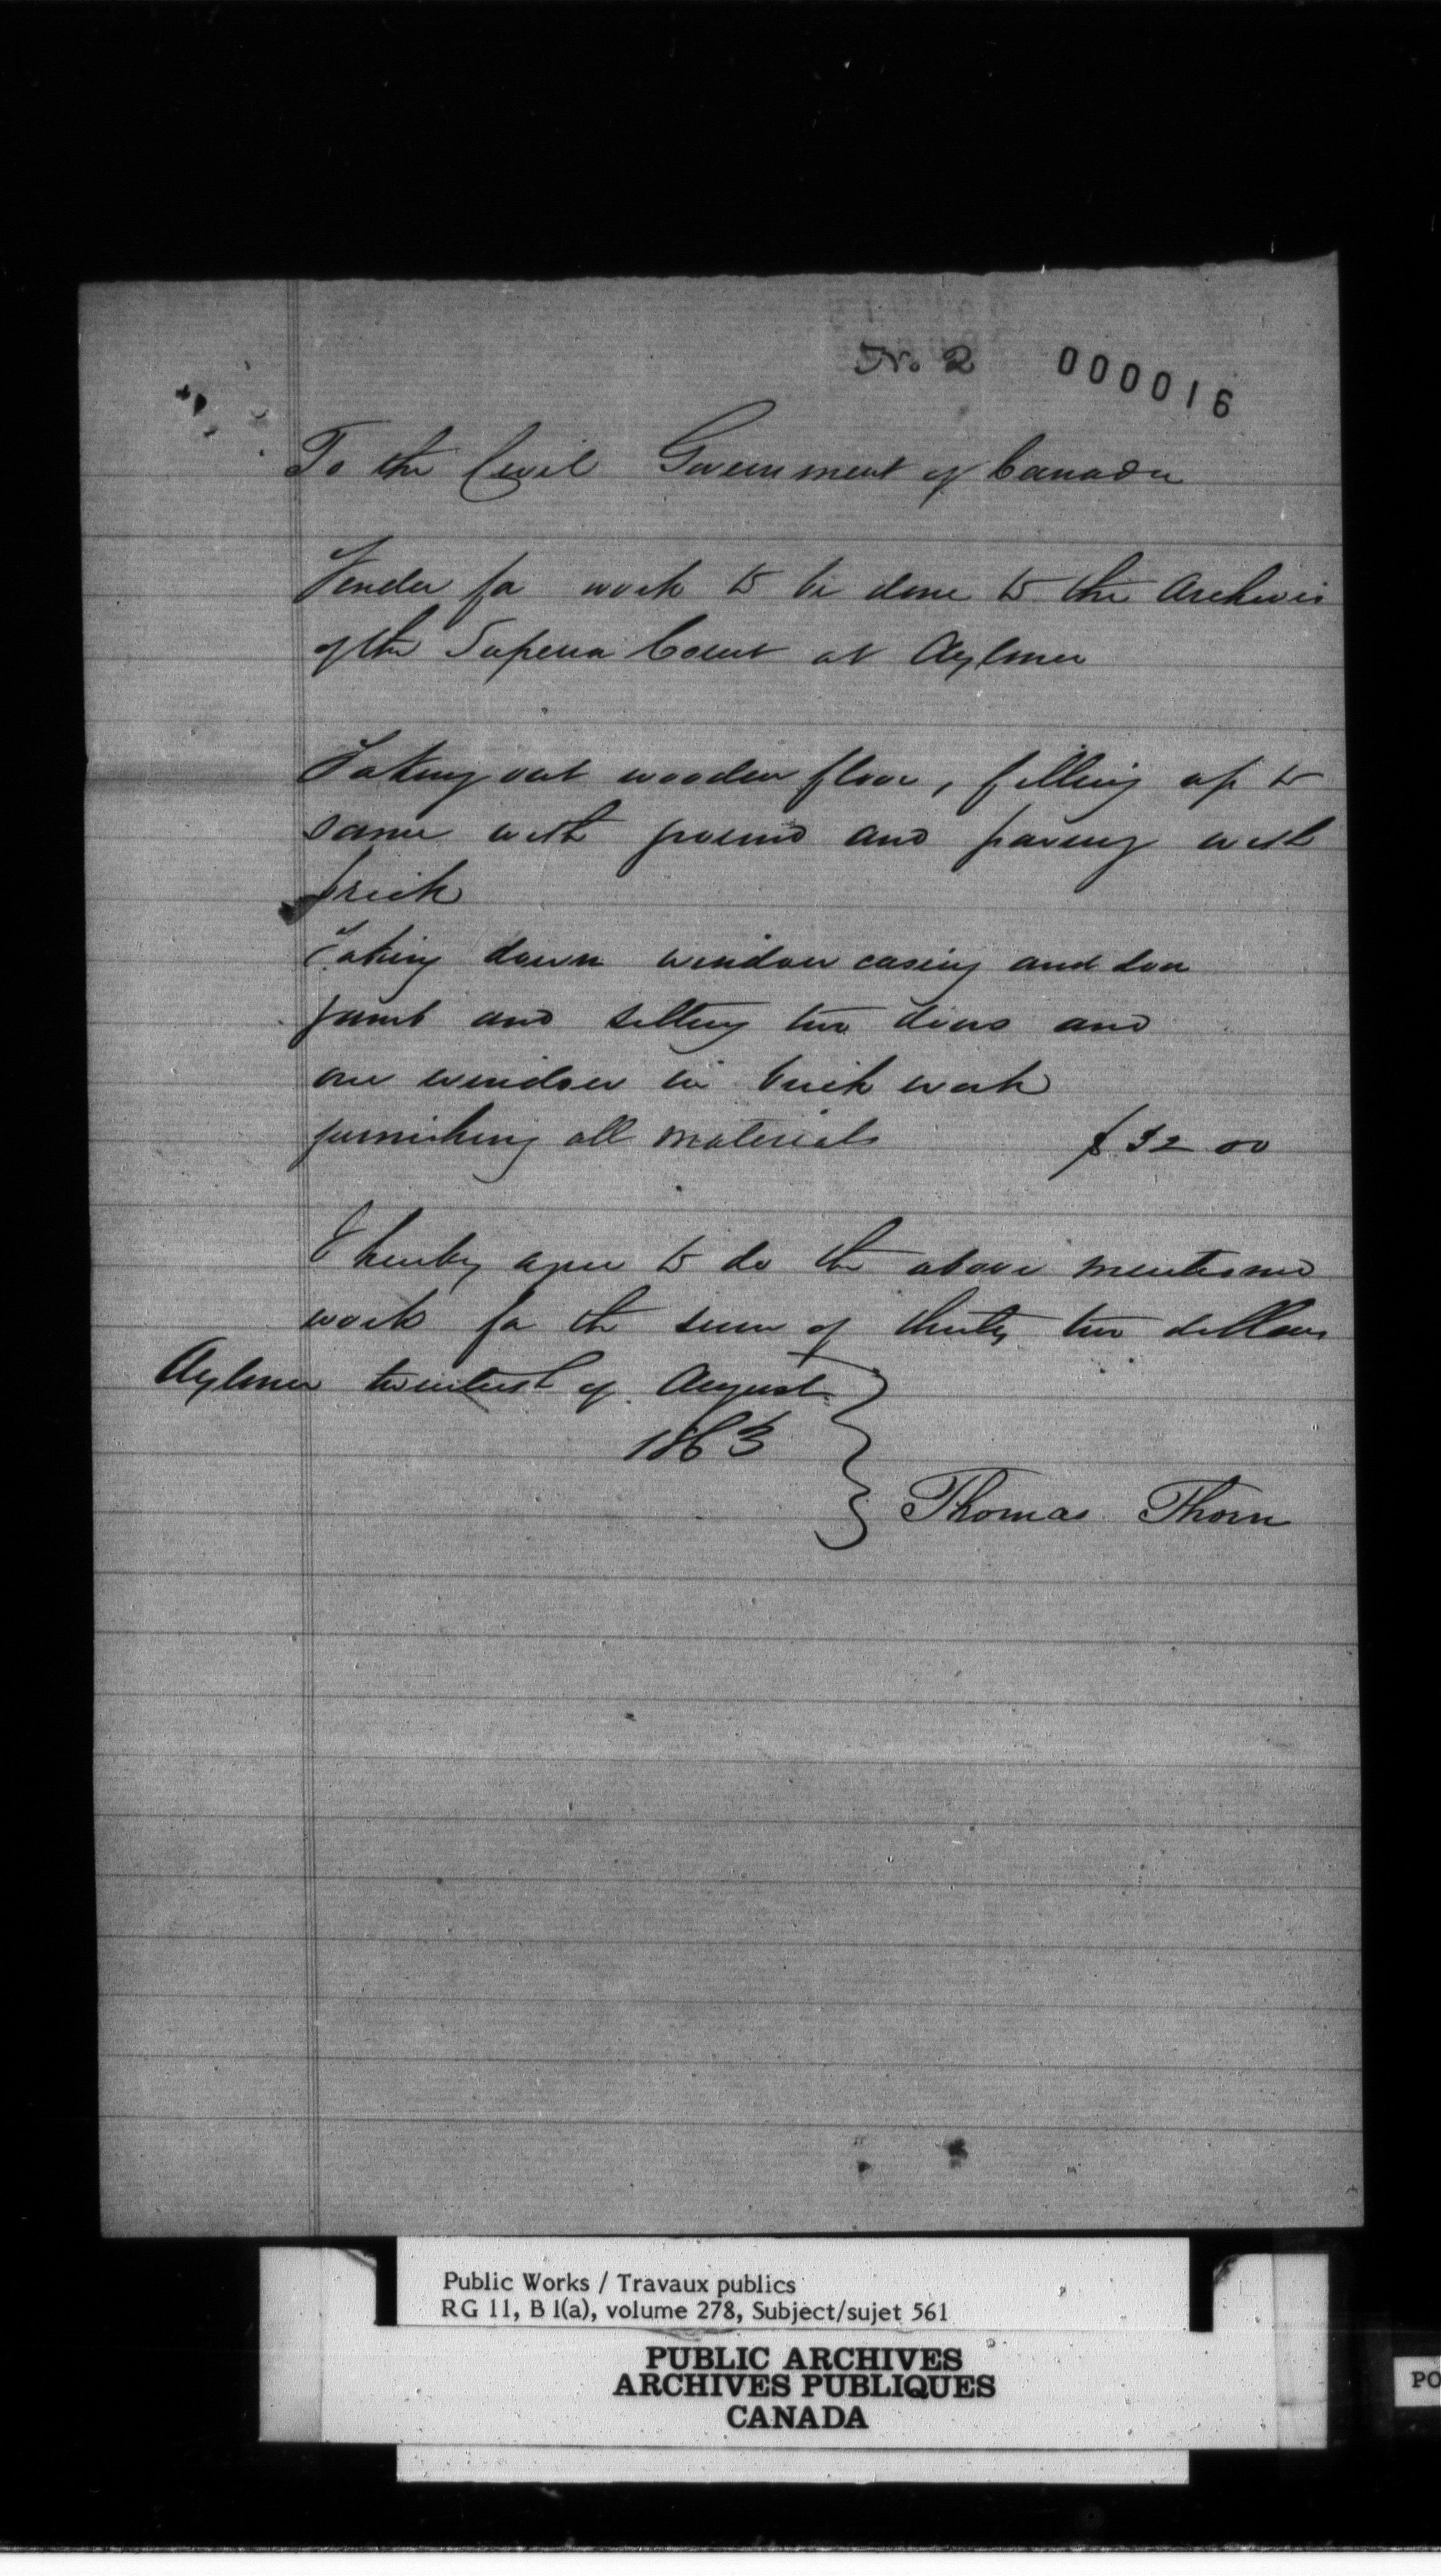 No. 2 000016
To the Civil Government of Canada
Tender for work to be done to the Archives
of the Superior Court at Aylmer
Taking out wooden floor, filling up to
same with ground and paving with
brick
Taking down window casing and door
jamb and setting two doors and
one window in brick work
furnishing all materials $32 00
I hereby agree to do the above mentioned
work for the sum of thirty two dollars
Aylmer of August
1863
Thomas Thorn
Public Works / Travaux publics
RG 11, B 1(a), volume 278, Subject/sujet 561
PUBLIC ARCHIVES
ARCHIVES PUBLIQUES
CANADA
PO